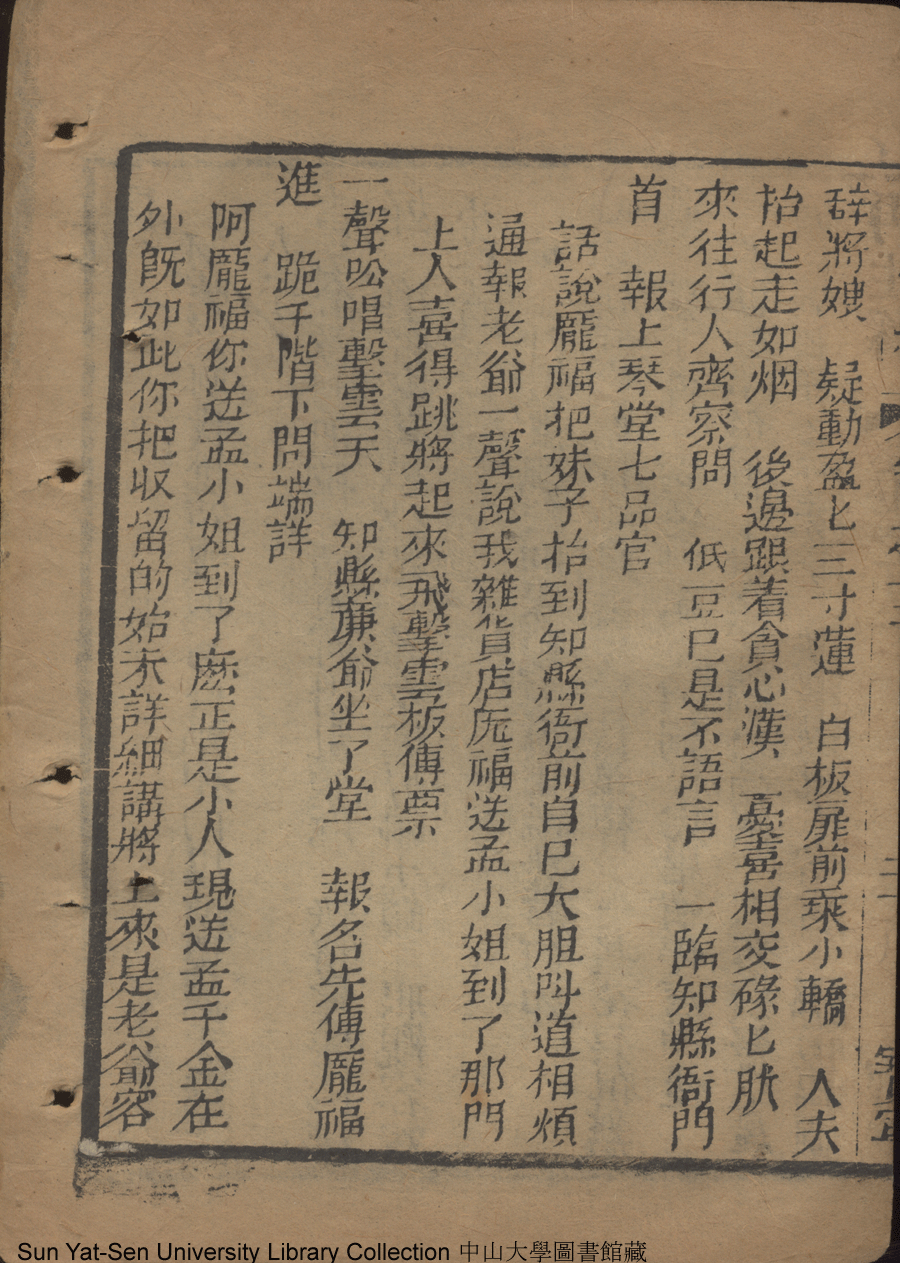 辞將嫂　疑動盈匕三寸蓮　白板扉前乘小轎　人夫
抬起走如烟　後邊跟着貪心漢　憂喜相交碌匕肰
來往行人齊察問　低豆巳是不語言　一臨知縣衙門
首　報上琴堂七品官
話說龐福把妹子抬到知縣衙前自巳大胆呌道相煩
通報老爺一聲說我雜貨店厐福送孟小姐到了那門
上人喜得跳將起來飛擊雲板傳票
一聲吆唱擊雲天　知縣蕭爺坐了堂　報名先傳龐福
進　跪于階下問端詳
阿龐福你送孟小姐到了麽正是小人現送孟千金在
外旣如此你把收留的始末詳細講將上來是老爺容
Sun Yat-Sen University Library Collection 中山大學圖書館藏